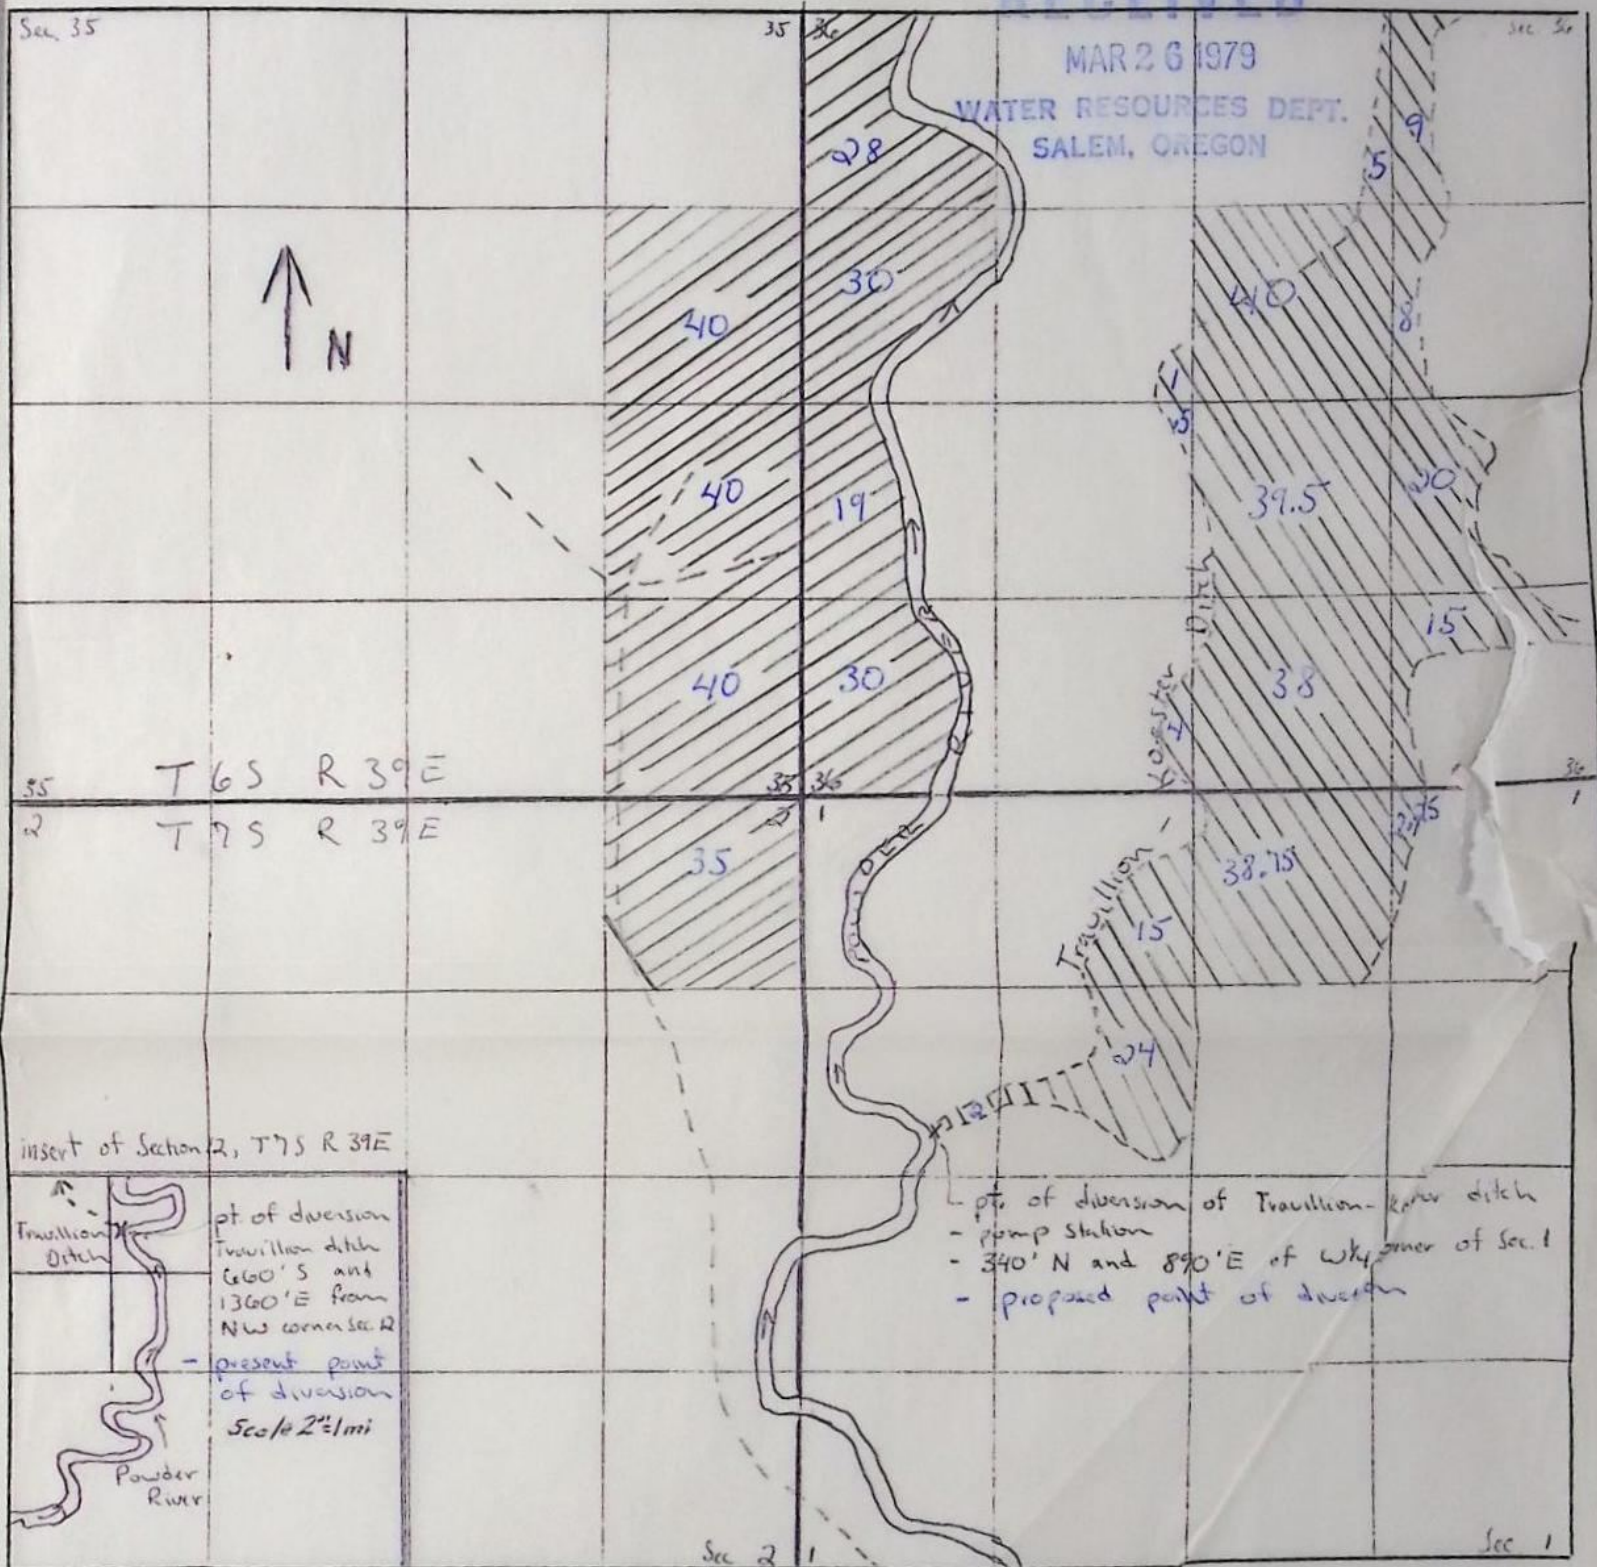 RECEIVED
MAR 26 1979
WATER RESOURCES DEPT.
SALEM, OREGON
Sec. 35
35 36
Sec 36
28
5
9
N
40
30
40
8
5
40
19
39.5
20
Ditch
15
40
30
38
Koester
1
T 6 S R 39 E
35
35 36
36
2
T 7 S R 39 E
2 1
1
35
Travillion -
38.75
15
24
2
insert of Section 12, T7S R 39E
Travillion
Ditch
pt. of diversion
Travillion ditch
660' S and
1360' E from
NW corner Sec. 12
- present point
of diversion
Scale 2"=1mi
Powder
River
- pt. of diversion of Travillion- ditch
- pump station
- 340' N and 890' E of W¼ corner of Sec. 1
- proposed point of diversion
Sec 2 1
Sec 1